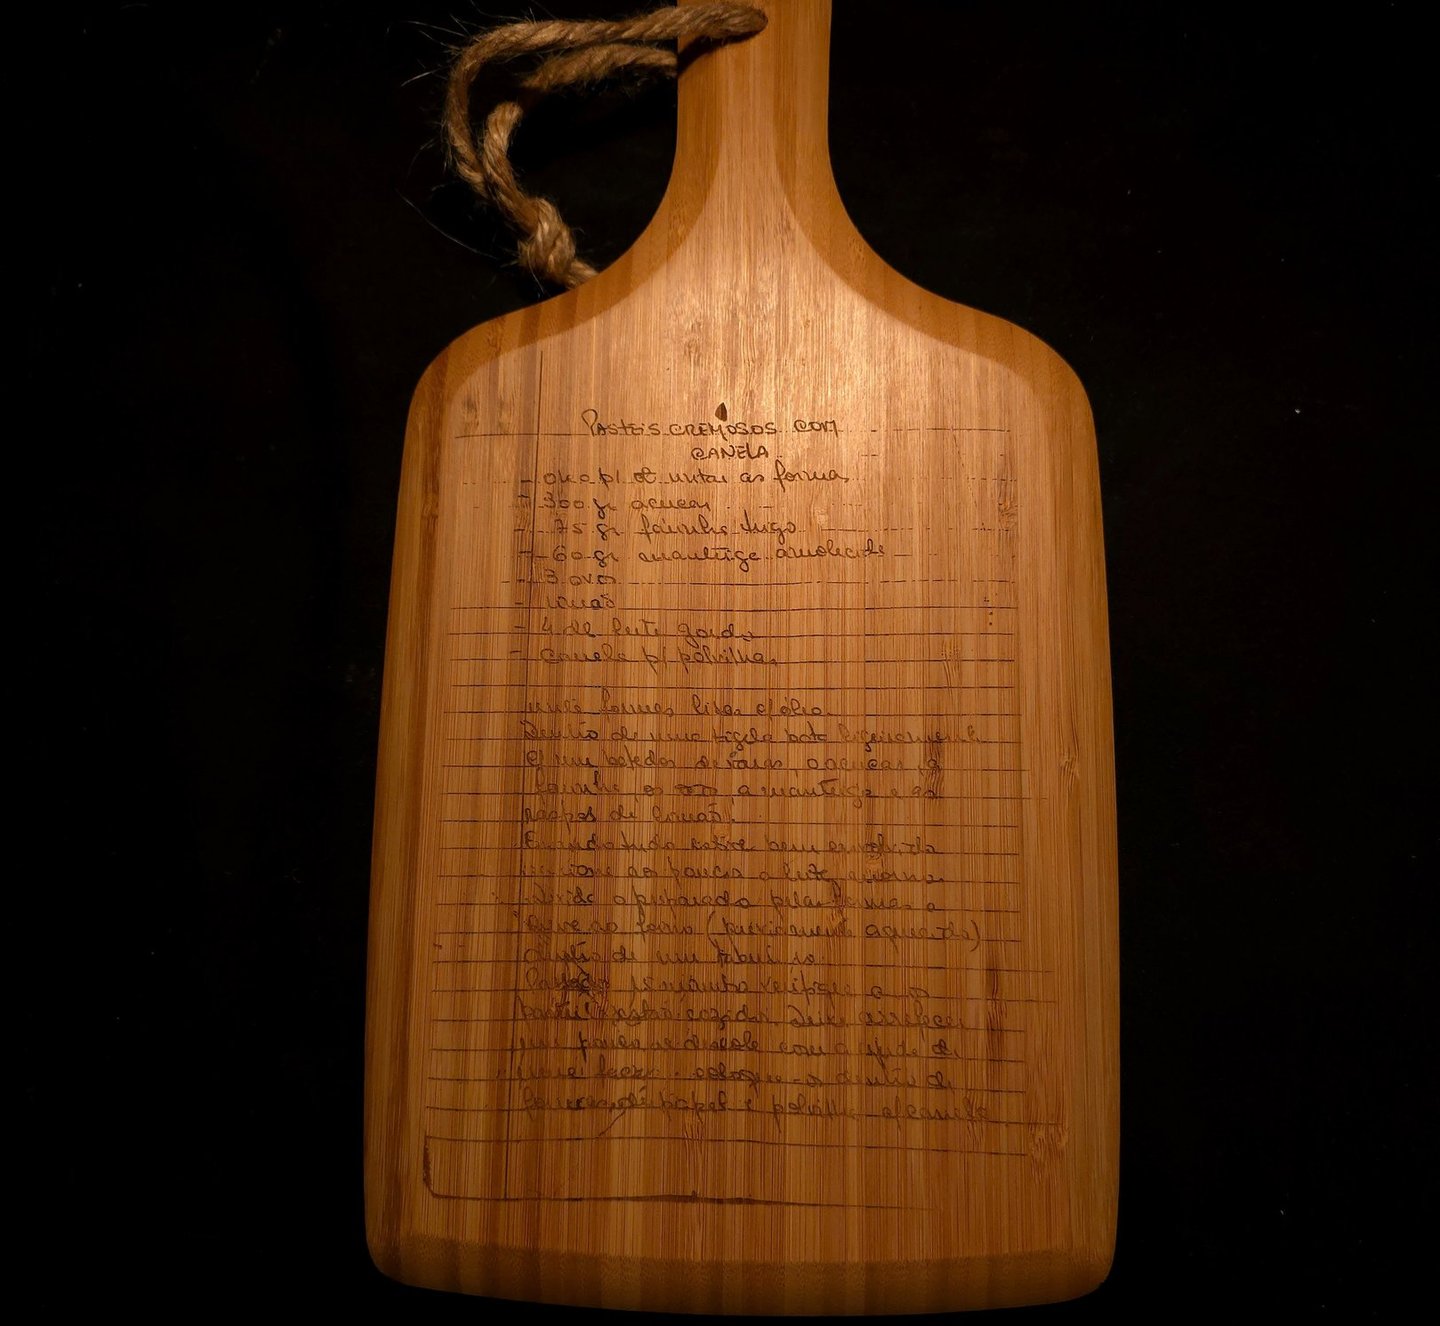 PASTEIS CREMOSOS COM
CANELA
- oleo p/ untar as formas
- 300 gr açucar
- 75 gr farinha trigo
- 60 gr manteiga amolecida
- 3 ovos
- limão
- 4 dl leite gordo
- canela p/ polvilhar
unte formas lisas c/ óleo.
Dentro de uma tigela bata ligeiramente
c/ um batedor de varas, o açucar, a
farinha, os ovos, a manteiga e as
raspas de limão.
Quando tudo estiver bem envolvido
adicione aos poucos o leite morno.
Divida o preparado pelas formas e
leve ao forno (previamente aquecido)
dentro de um tabuleiro.
verifique se os
pasteis estão cozidos. Deixe arrefecer
um pouco e descole com a ajuda de
uma faca. coloque-os dentro de
formas de papel e polvilhe c/ canela